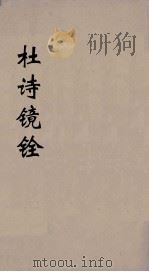 杜诗镜铨
mtoou.info